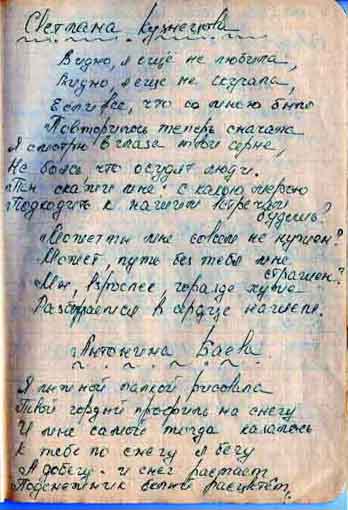 Светлана Кузнецова
Видно, я ещё не любила,
Видно, я еще не скучала,
Если все, что со мною было
Повторилось теперь сначала
Я смотрю в глаза твои серые,
Не боясь что осудят люди.
Ты скажи мне: с какою мерою
Подходить к нашим встречам
будешь?
Может ты мне совсем не нужен?
Может, путь без тебя мне
страшен?
Мы, взрослее, гораздо хуже
Разбираемся в сердце нашем.
Антонина Баева
Я лыжной палкой рисовала
Твой гордый профиль на снегу
И мне самой тогда казалось
К тебе по снегу я бегу
А добегу - и снег растает
Подснежник белый расцветёт.